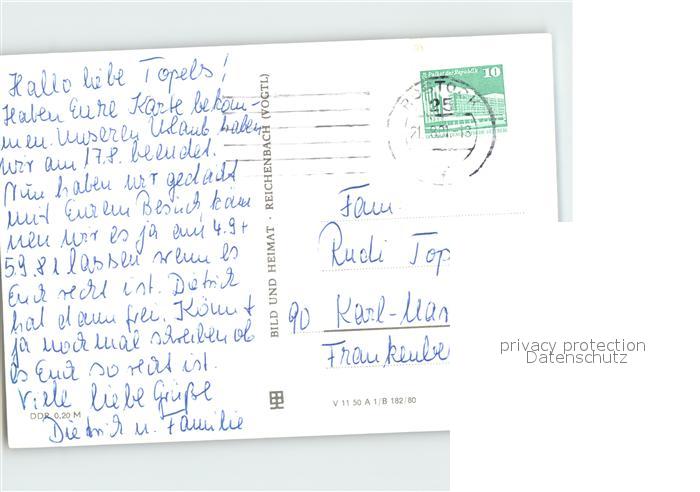 Hallo liebe Topels!
Haben Eure Karte bekom-
men. Unseren Urlaub haben
wir am 17.8. beendet.
Nun haben wir gedacht
mit Eurem Besuch kön
nen wir es ja am 4.9+
5.9.81 lassen wenn es
Euch recht ist. Dietrich
hat dann frei. Könnt
ja noch mal schreiben ob
es Euch so recht ist.
Viele liebe Grüße
Dietrich u. Familie
DDR 0,20 M
BILD UND HEIMAT · REICHENBACH (VOGTL)
V 11 50 A 1/B 182/80
Palast der Republik 10
ROSTOCK
25
Fam.
Rudi Top
90 Karl-Mar
Frankenbe
privacy protection
Datenschutz